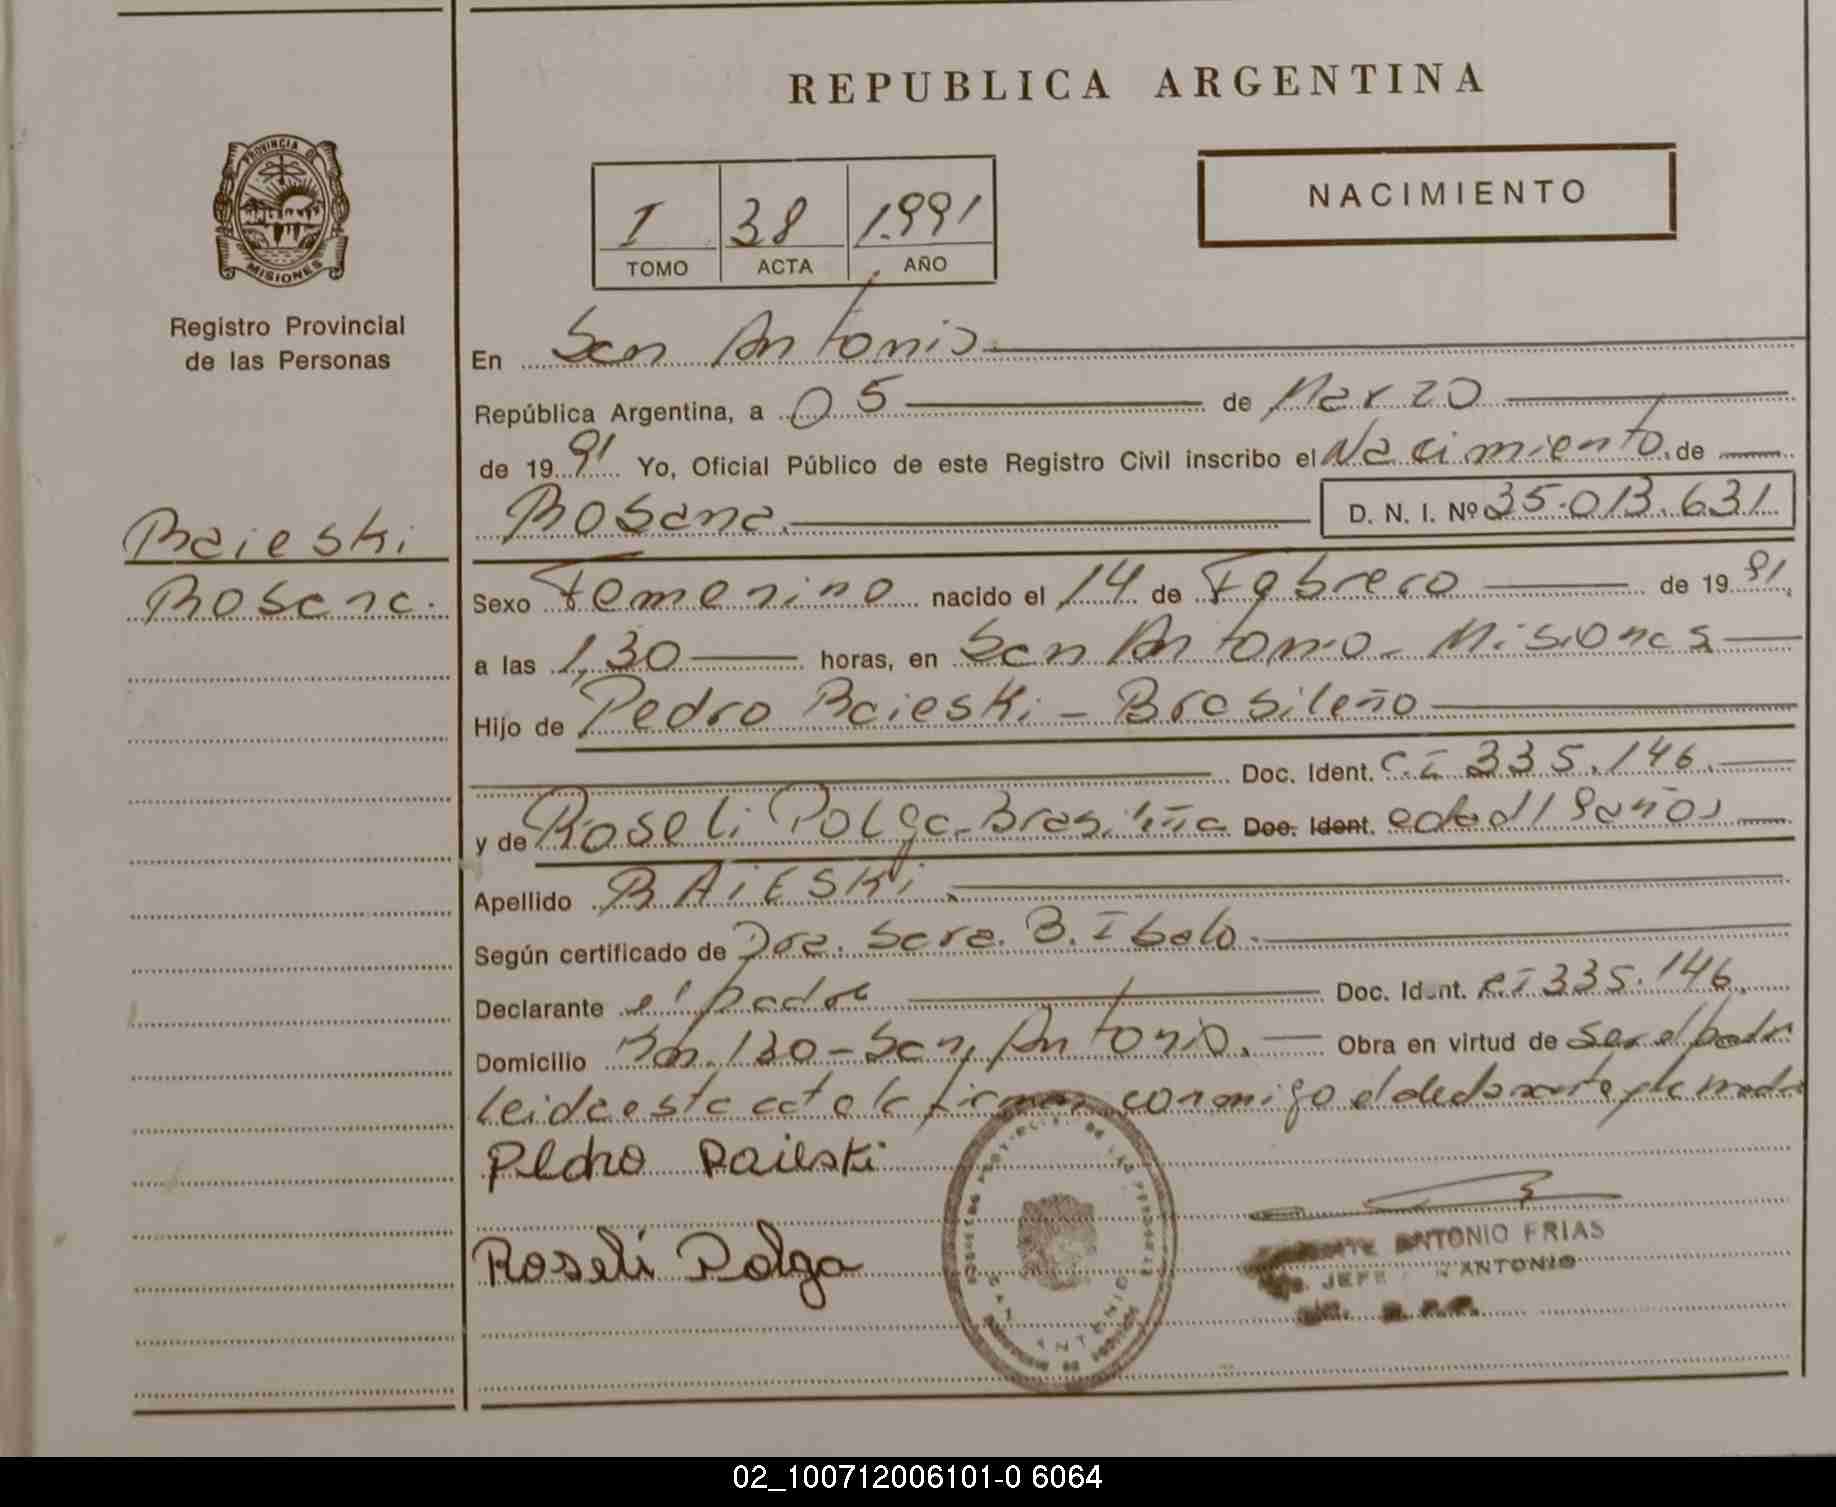 REPUBLICA ARGENTINA
PROVINCIA DE
MISIONES
Registro Provincial
de las Personas
NACIMIENTO
I 38 1.991
TOMO ACTA AÑO
En San Antonio
República Argentina, a 05 de Marzo
de 19 91 Yo, Oficial Público de este Registro Civil inscribo el Nacimiento de
Rosana. D. N. I. Nº 35.013.631
Baieski
Rosana.
Sexo Femenino nacido el 14 de Febrero de 19 91,
a las 1,30 horas, en San Antonio - Misiones
Hijo de Pedro Baieski - Brasileño
Doc. Ident. C.I 335.146.
y de Roseli Polga - Brasileña Doc. Ident. edad 18 años
Apellido BAiESKi
Según certificado de Dra. Sara. B. Ibalo.
Declarante el padre Doc. Ident. CI 335.146.
Domicilio San Antonio. Obra en virtud de ser el padre
Leida esta acta la firman conmigo el declarante y la madre
Pedro Baieski
Roseli Polga
ANTONIO FRIAS
JEFE ANTONIO
SAN ANTONIO
02_100712006101-0 6064